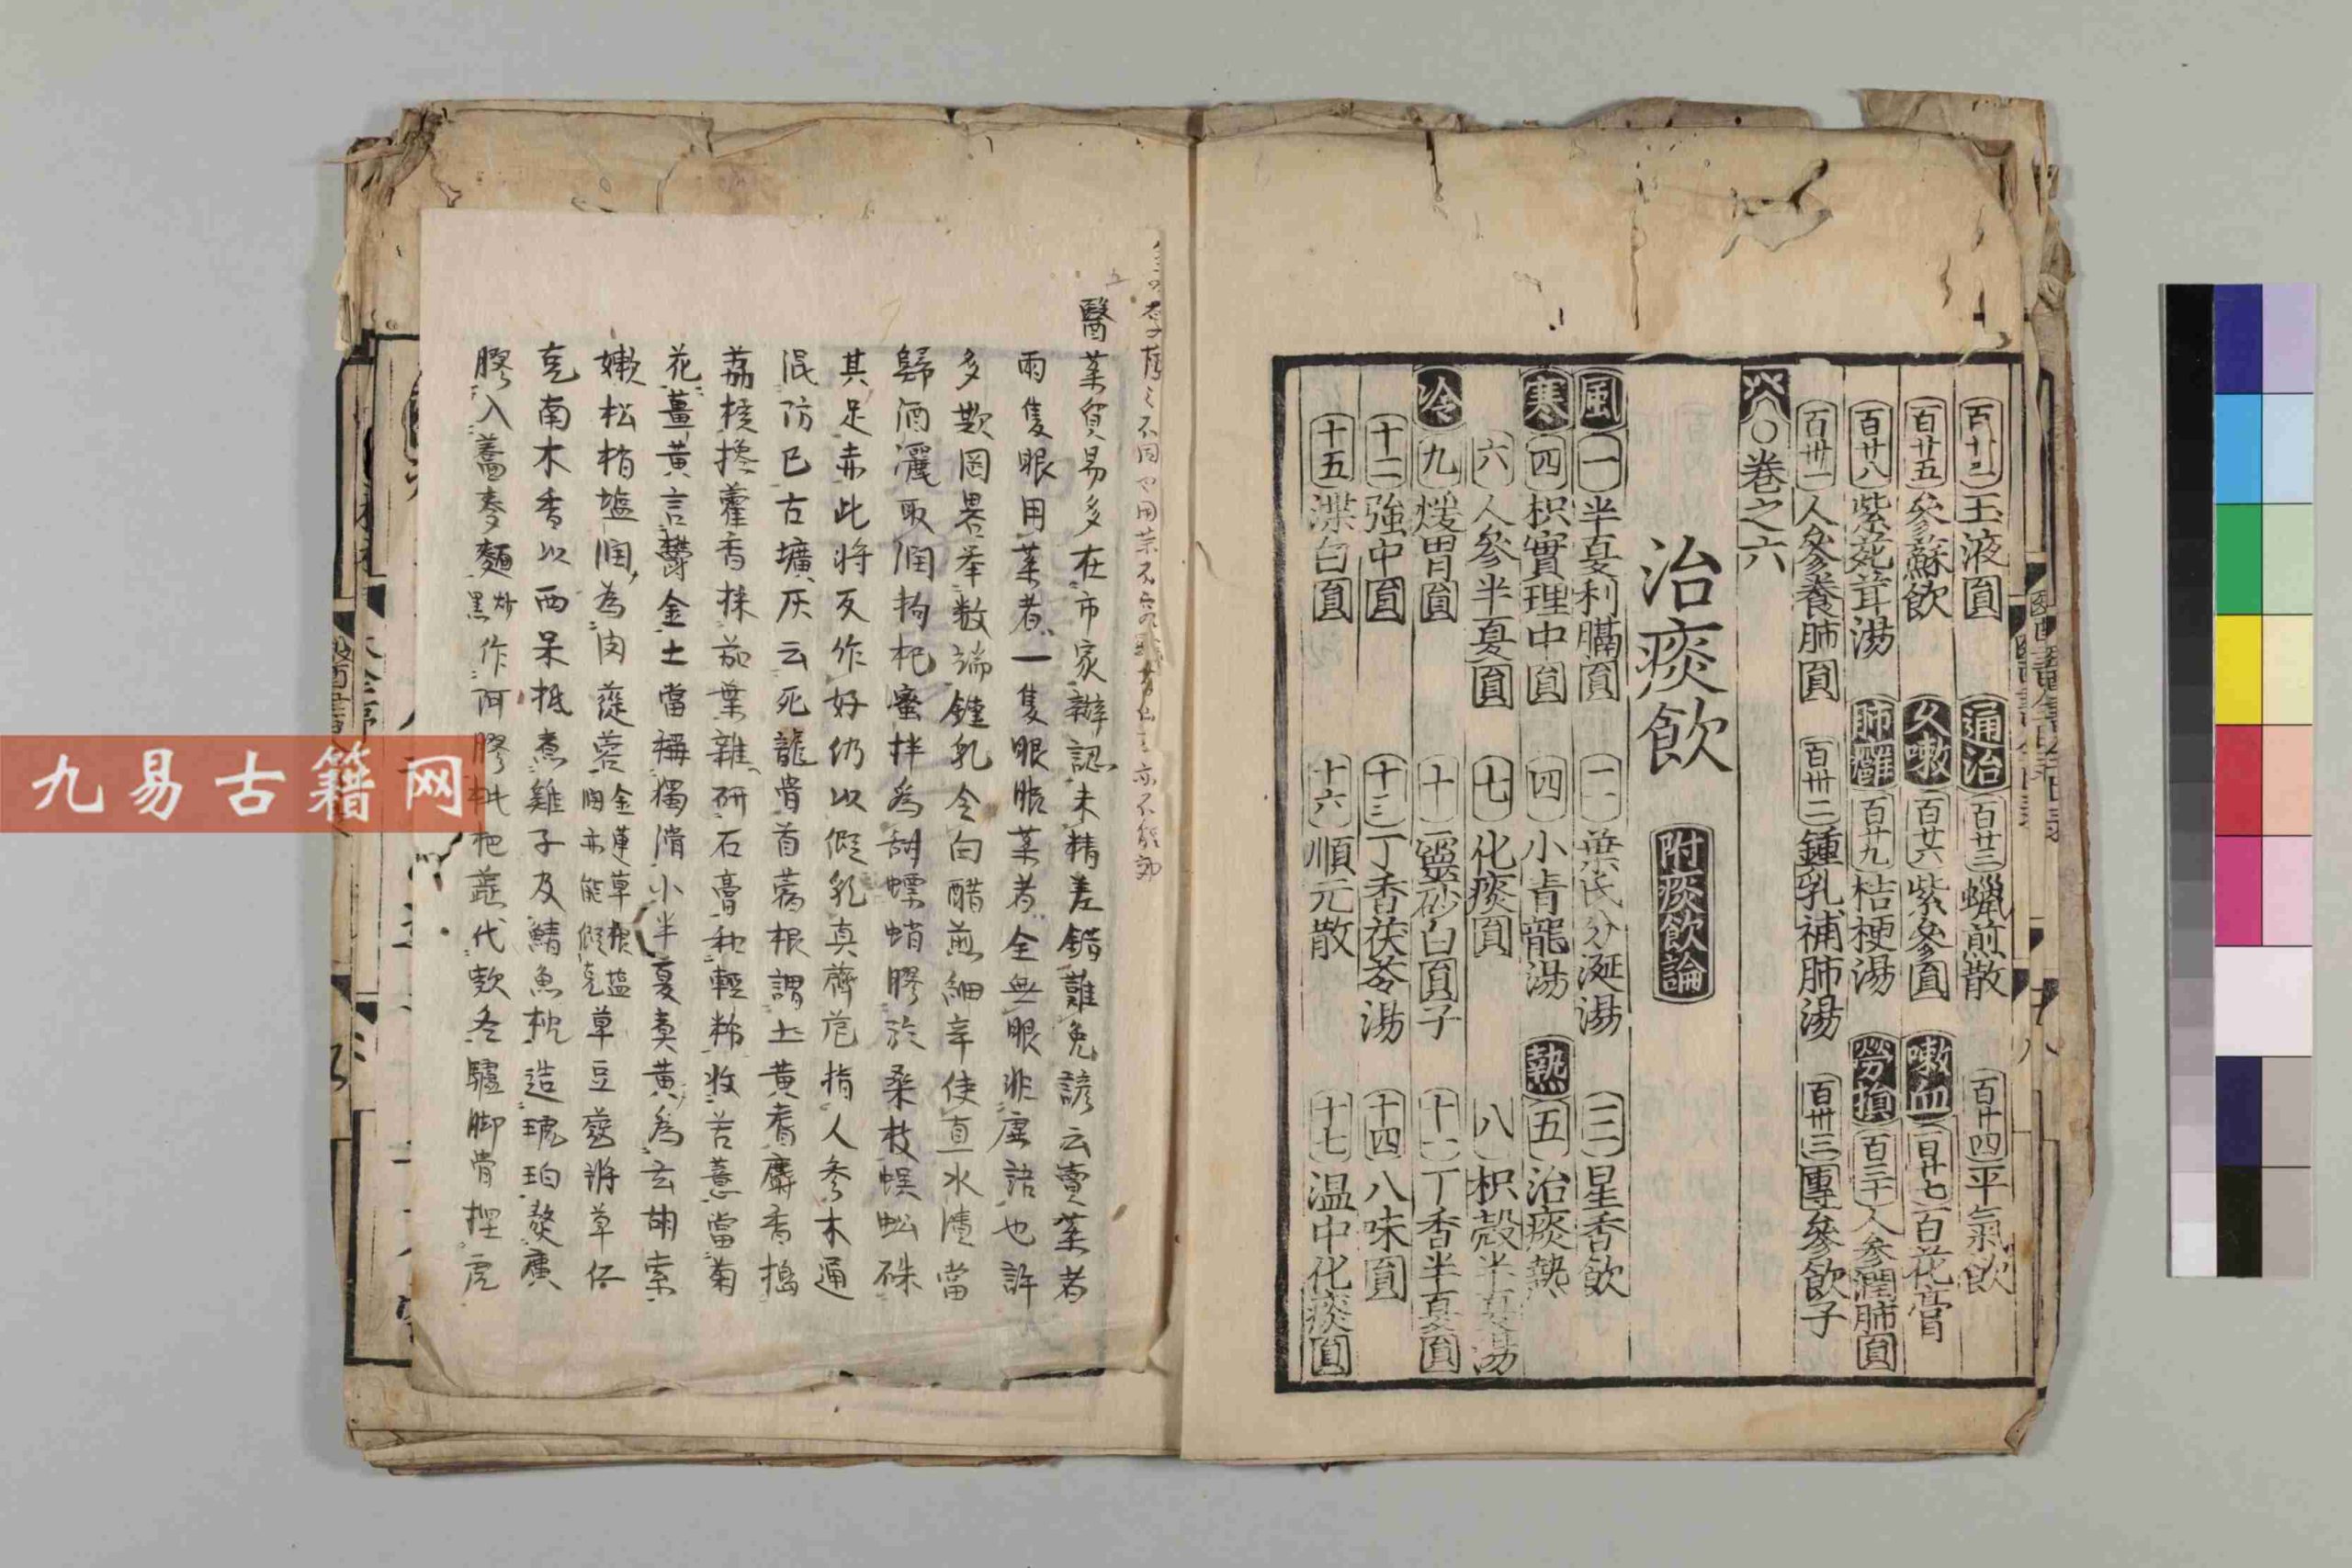 百廿二玉液圓 通治 百廿三蠟煎散 百廿四平氣飲
百廿五參蘇飲 久嗽 百廿六紫參圓 嗽血 百廿七百花膏
百廿八紫菀茸湯 肺癰 百廿九桔梗湯 勞損 百三十人參潤肺圓
百卅一人參養肺圓 百卅二鍾乳補肺湯 百卅三團參飲子
○卷之六
治痰飲 附痰飲論
風 一半夏利膈圓 二葉氏分涎湯 三星香飲
寒 四枳實理中圓 四小青龍湯 熱 五治痰熱
六人參半夏圓 七化痰圓 八枳殼半夏湯
冷 九煖胃圓 十靈砂白圓子 十一丁香半夏圓
十二強中圓 十三丁香茯苓湯 十四八味圓
十五渫白圓 十六順元散 十七温中化痰圓
醫藥貿易多在市家辦認未精差錯難免諺云賣藥者
兩隻眼用藥者一隻眼服藥者全無眼非虛語也許
多欺罔畧舉數端鍾乳令白醋煎細辛使直水漬當
歸酒灑取潤枸杞蜜拌為甜螵蛸膠於桑枝蜈蚣硃
其足赤此將歹作好仍以假亂真薺苨指人參木通
混防已古壙灰云死龍骨苜蓿根謂土黃耆麝香搗
荔核攙藿香採茄葉雜研石膏和輕粉收苦薏當菊
花薑黃言鬱金土當稱獨滑小半夏煑黃為玄胡索
嫩松梢鹽潤為肉蓯蓉金蓮草根鹽潤亦能假充草豆蔻將草仁
充南木香以西呆抵煮雞子及鯖魚枕造琥珀熬廣
膠入蕎麥麵炒黑作阿膠枇杷蕋代款冬驢脚骨捏虎
九易古籍网